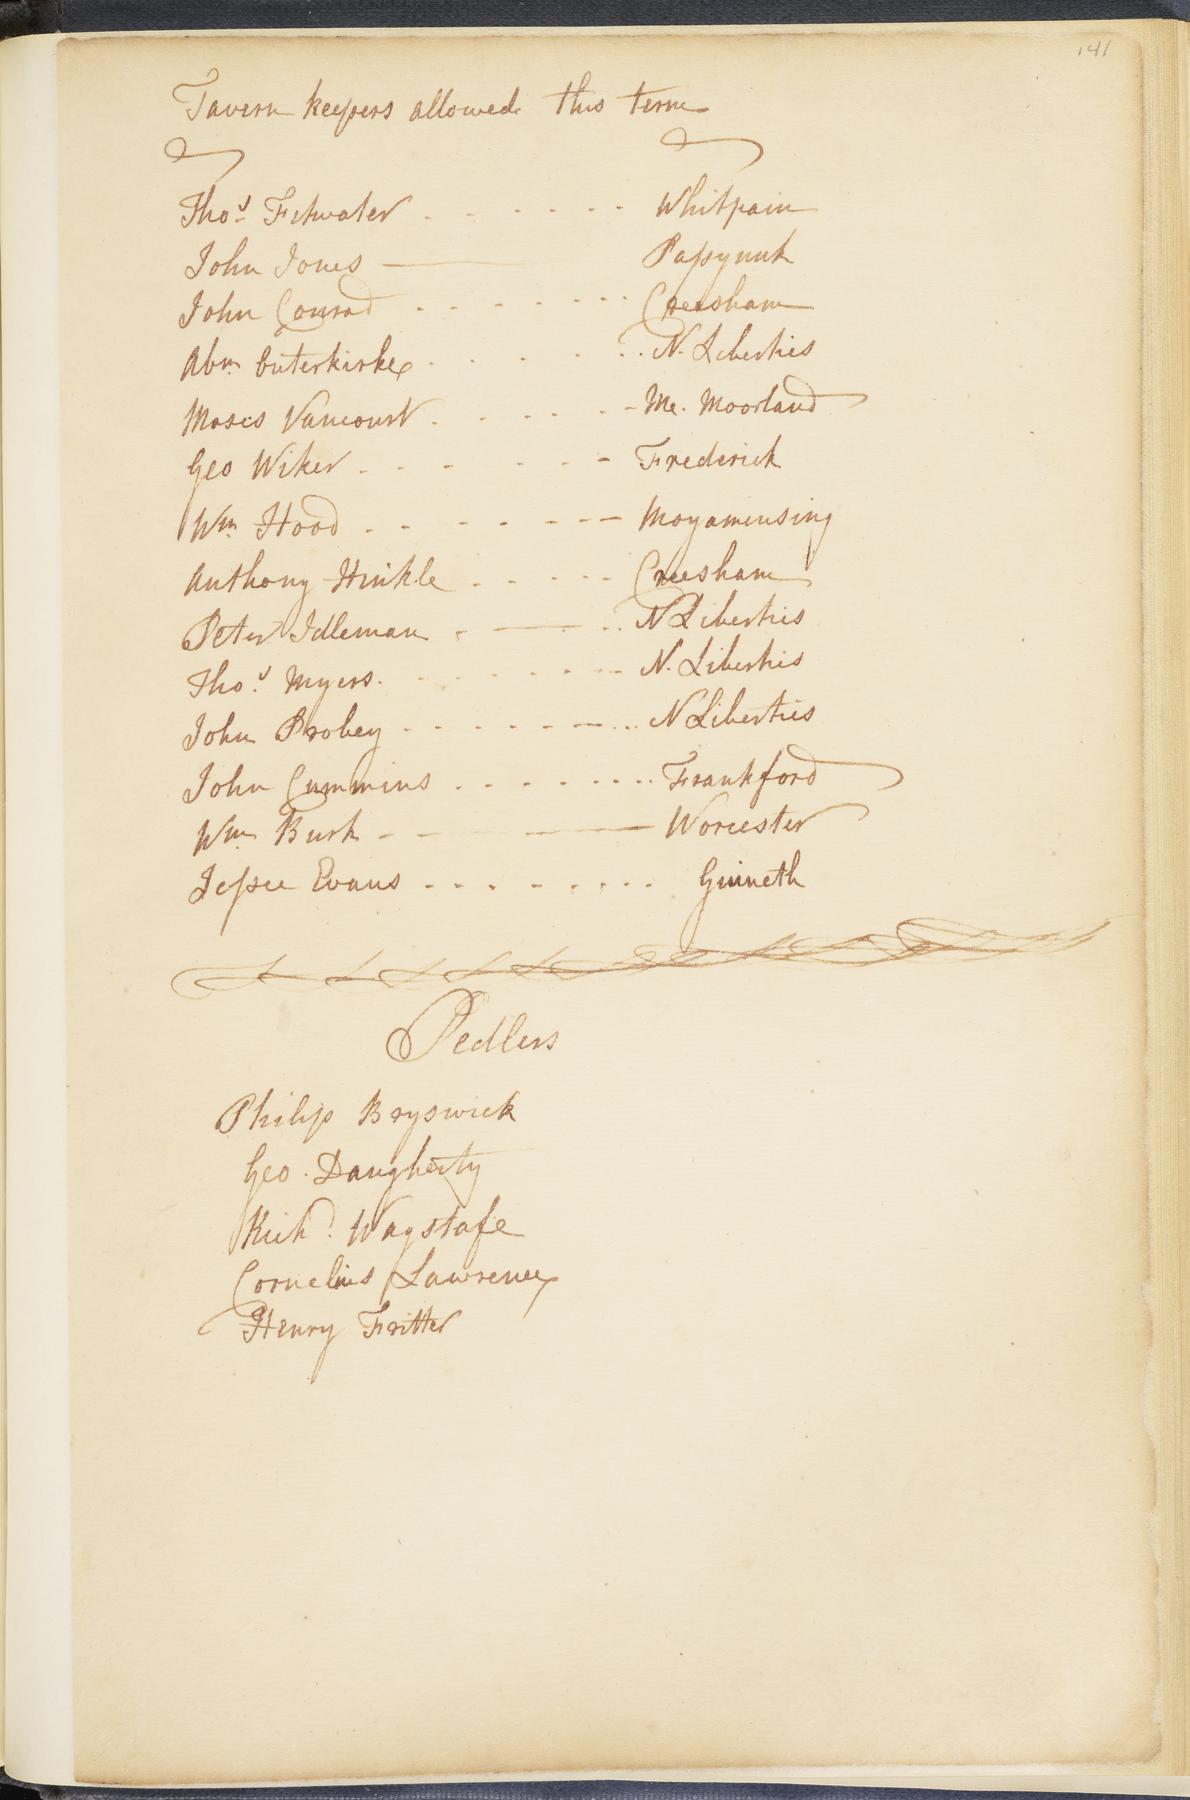 141
Tavern keepers allowed this term
Thos. Fitwater - - - - - - Whitpain
John Jones — Passyunk
John Conrad - - - - - - - - Creesham
Abm. Outerkirke - - - - - N. Liberties
Moses Vancourt - - - - - - Me. Moorland
Geo Wiker - - - - - - Frederick
Wm. Hood - - - - - - - Moyamensing
Anthony Hinkle - - - - - Creesham
Peter Idleman - — - N Liberties
Thos. Myers. - - - - - - N. Liberties
John Probey - - - - - - - N Liberties
John Cummins - - - - - - - - Frankford
Wm. Burk - - — Worcester
Jessee Evans - - - - - - - - Guineth
Pedlers
Philip Bryswick
Geo. Daugherty
Richd. Wagstafe
Cornelius Lawrence
Henry Fritter